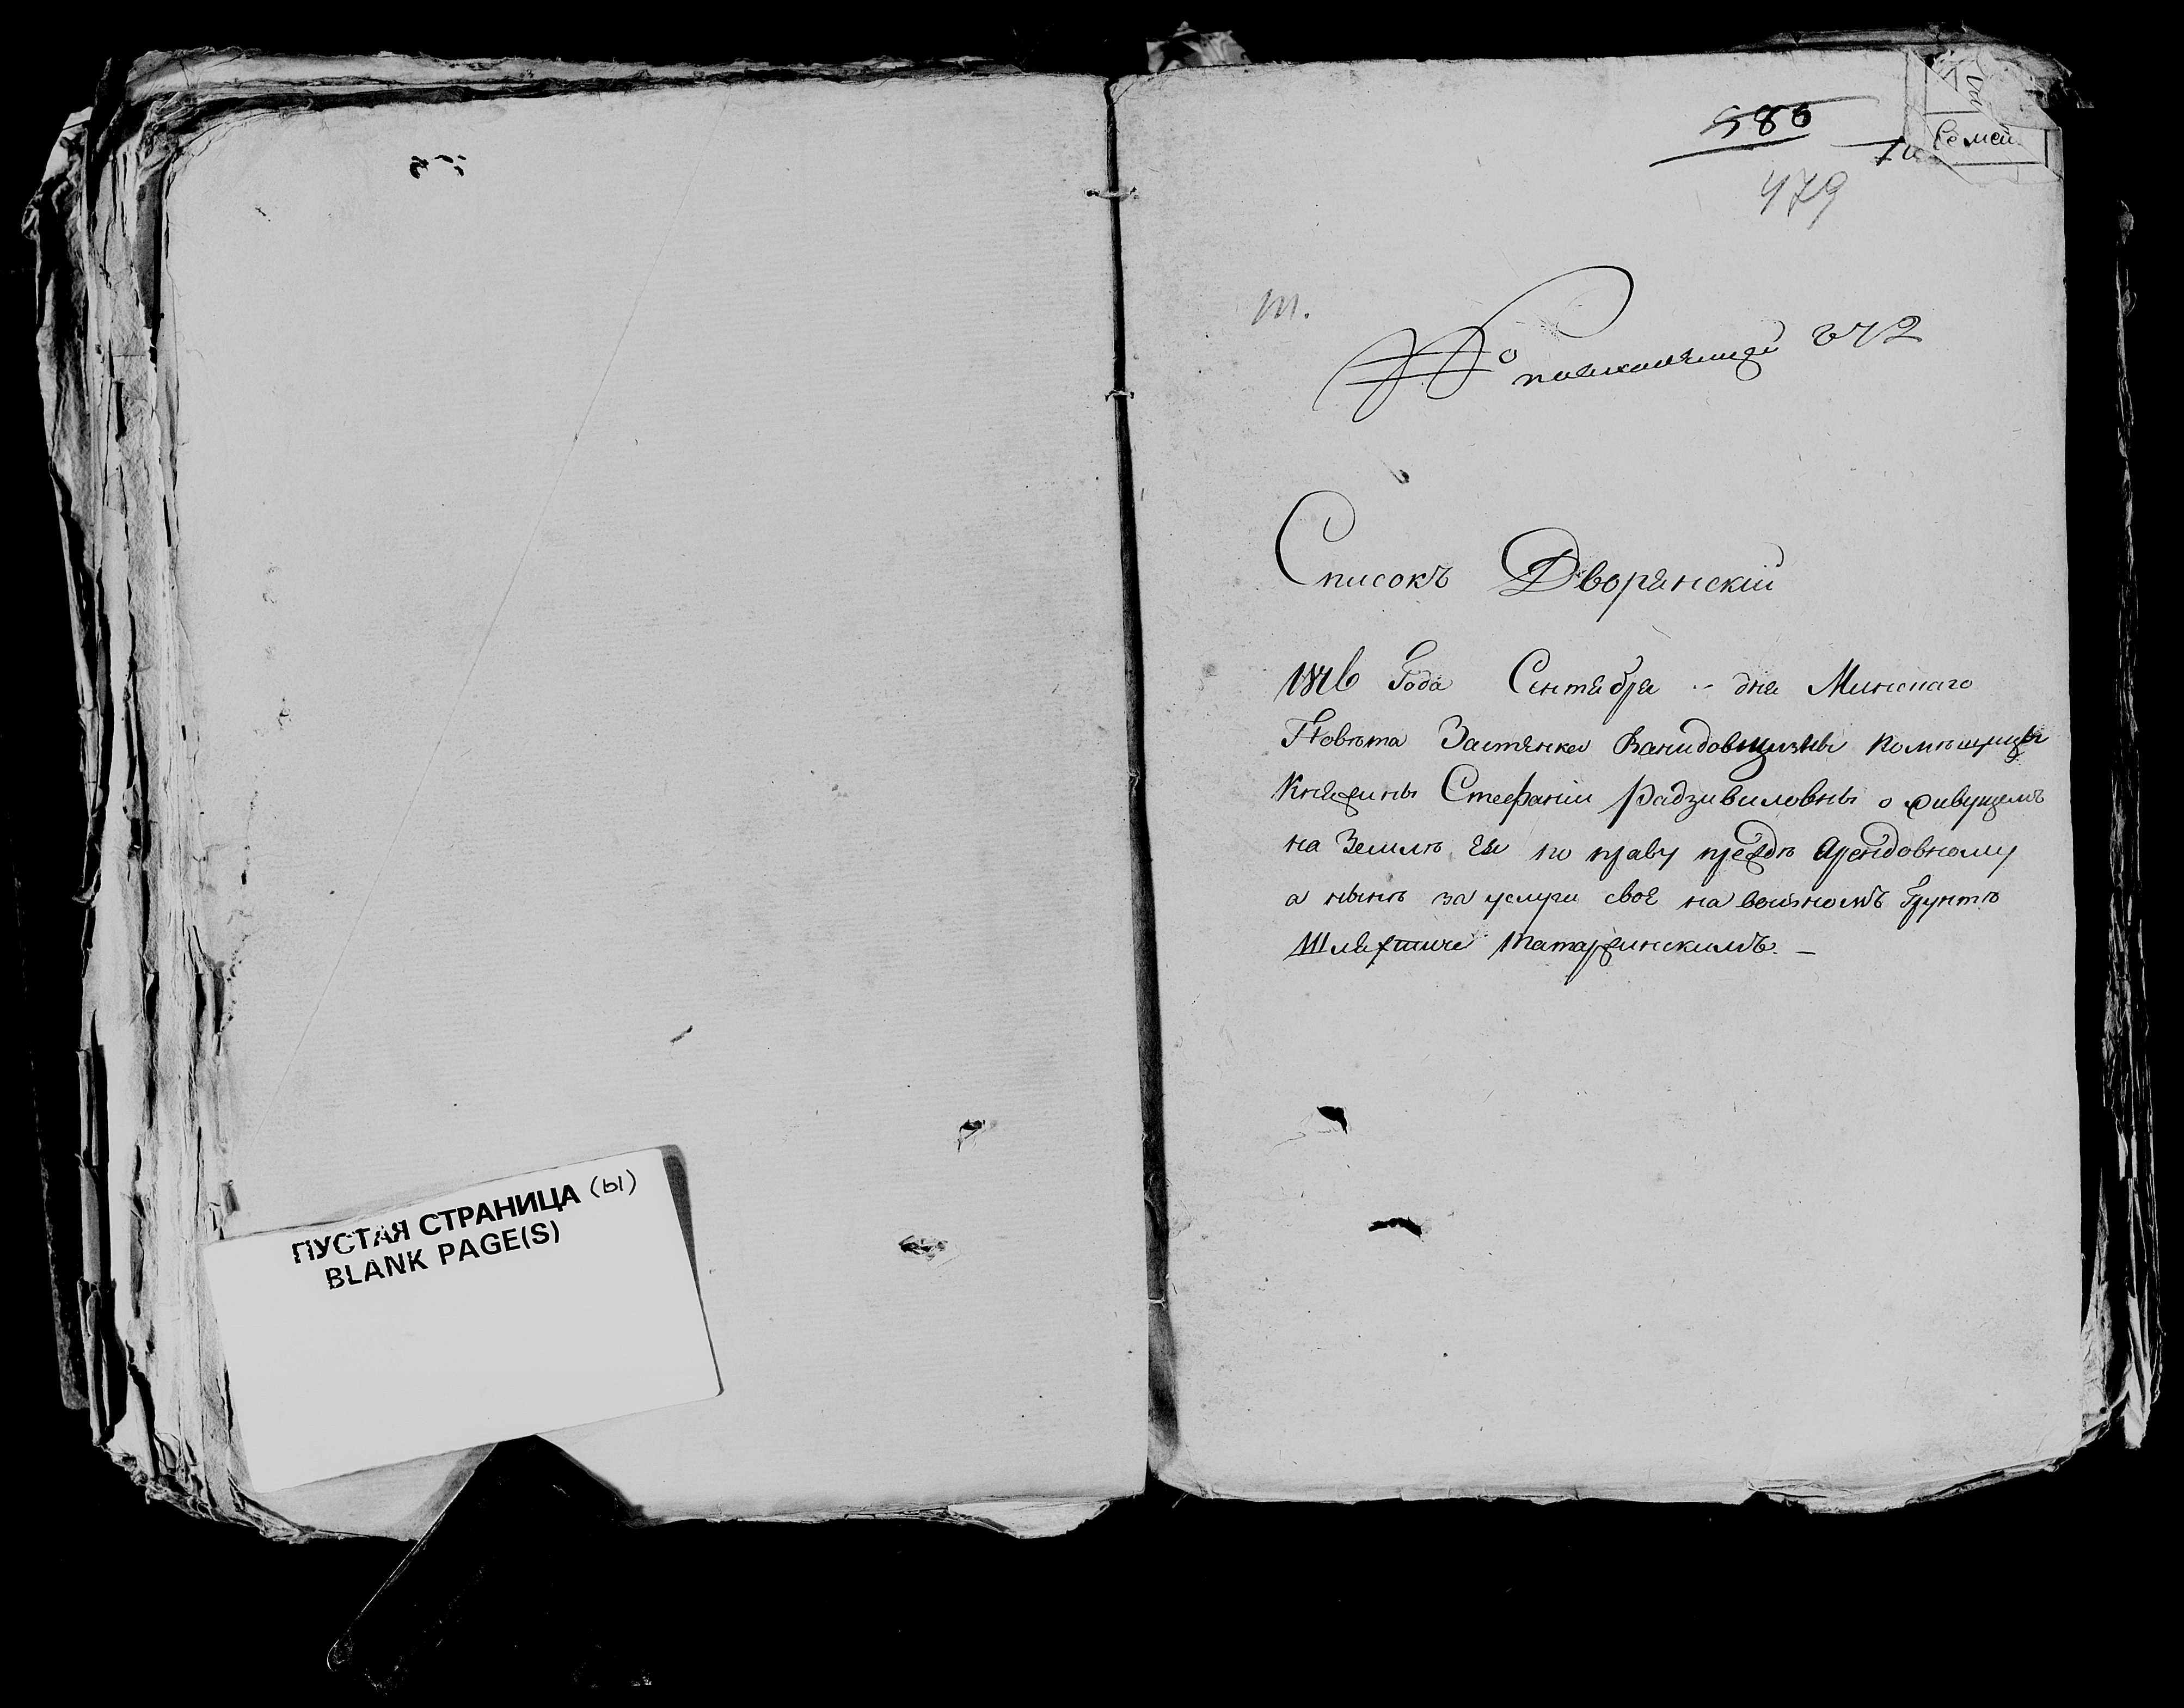 ПУСТАЯ СТРАНИЦА (ы)
BLANK PAGE(S)
586
Семей
479
т.
№
Списокъ Дворянскій
1816 Года Сентября .. дня Минскаго
Повѣта Застѣнка Помѣщицы
Княжны Стефаніи Радзивиловны о живущемъ
на Землѣ Ея по праву прежде Арендовному
а нынѣ за услуги своё на военномъ Грунтѣ
Шляхтиче Татаржинскимъ. —